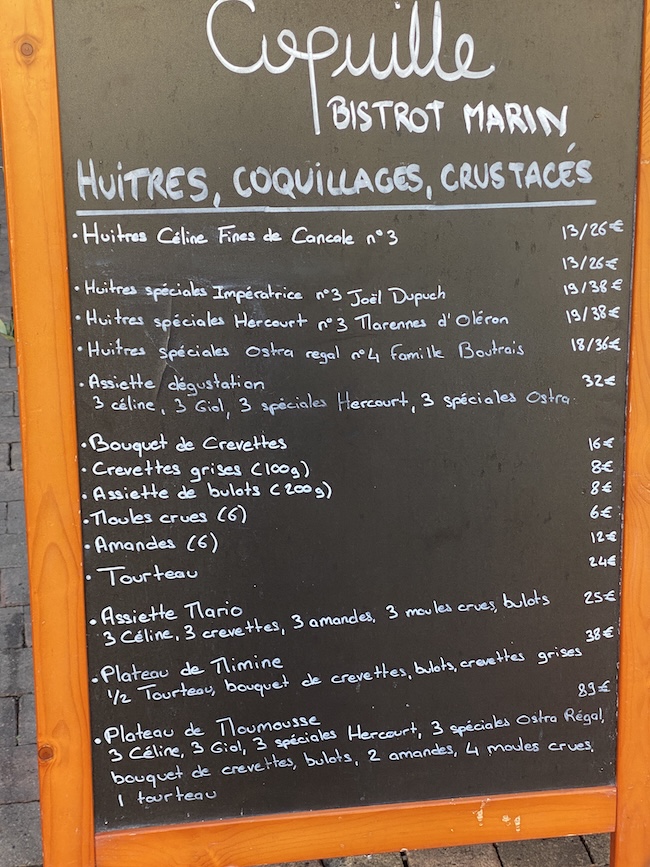 Coquille
BISTROT MARIN
HUITRES, COQUILLAGES, CRUSTACÉS
• Huitres Céline Fines de Cancale n°3 13/26€
13/26€
• Huitres spéciales Impératrice n°3 Joël Dupuch 19/38€
• Huitres spéciales Hercourt n°3 Marennes d'Oléron 19/38€
• Huitres spéciales Ostra regal n°4 Famille Boutrais 18/36€
• Assiette dégustation 32€
3 céline, 3 Giol, 3 spéciales Hercourt, 3 spéciales Ostra.
• Bouquet de Crevettes 16€
• Crevettes grises (100g) 8€
• Assiette de bulots (200g) 8€
• Moules crues (6) 6€
• Amandes (6) 12€
• Tourteau 24€
• Assiette Mario 25€
3 Céline, 3 crevettes, 3 amandes, 3 moules crues, bulots
• Plateau de Mimine 38€
1/2 Tourteau, bouquet de crevettes, bulots, crevettes grises
• Plateau de Moumousse 89€
3 Céline, 3 Giol, 3 spéciales Hercourt, 3 spéciales Ostra Régal,
bouquet de crevettes, bulots, 2 amandes, 4 moules crues,
1 tourteau